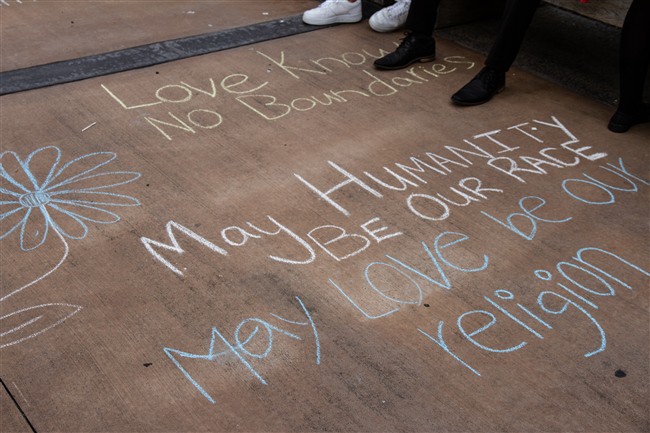 Love Know
No Boundaries
May Humanity
Be Our Race
May Love be our
religion